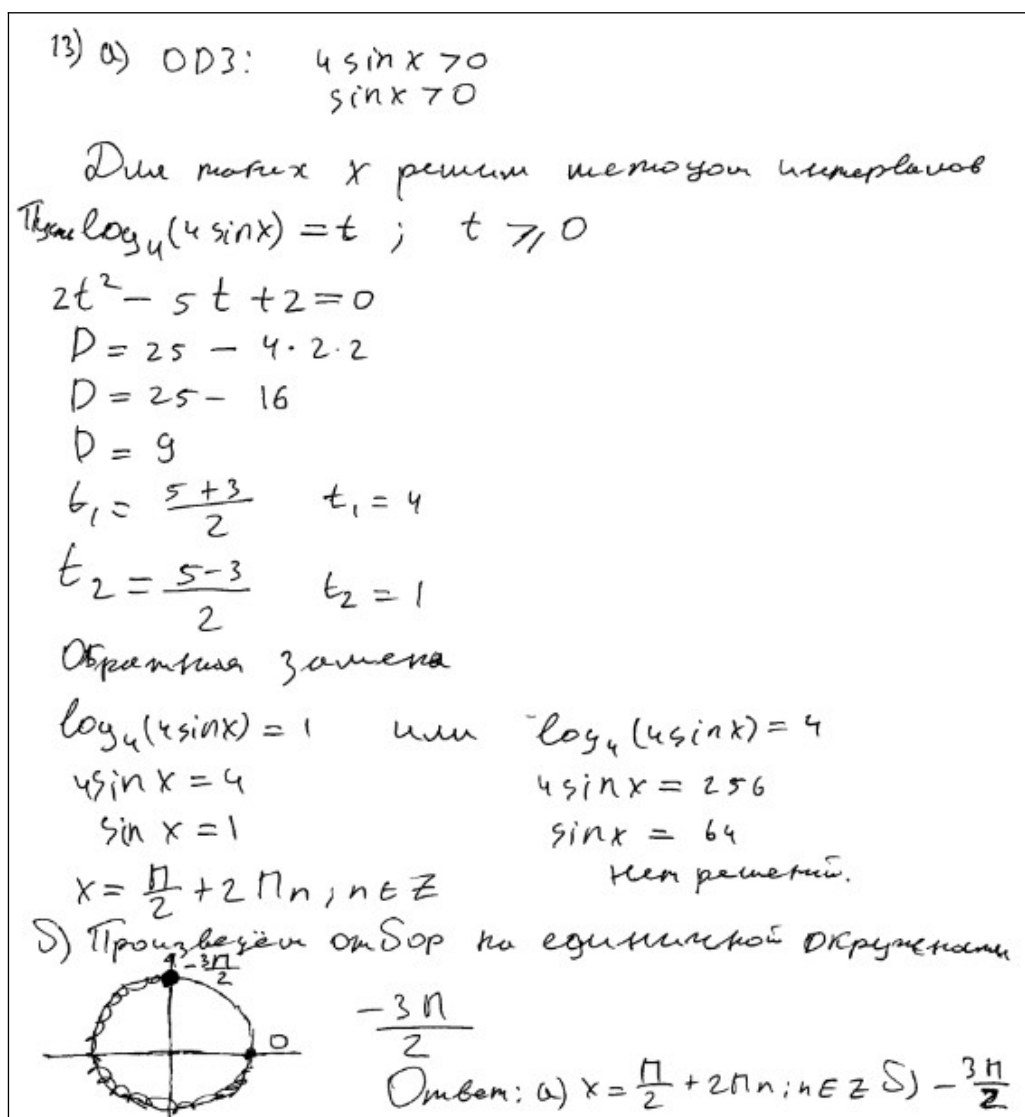 13) а) ОДЗ: 4 sin x > 0
sin x > 0
Для таких x решим методом интервалов
Пусть log₄(4 sin x) = t ; t ⩾ 0
2t² − 5t + 2 = 0
D = 25 − 4·2·2
D = 25 − 16
D = 9
t₁ = (5+3)/2 t₁ = 4
t₂ = (5−3)/2 t₂ = 1
Обратная замена
log₄(4sinx) = 1 или log₄(4sinx) = 4
4sin x = 4 4 sin x = 256
sin x = 1 sin x = 64
x = П/2 + 2Пn ; n ∈ Z нет решений.
б) Произведём отбор на единичной окружности
−3П/2
0
−3П/2
Ответ: а) x = П/2 + 2Пn ; n ∈ Z б) −3П/2